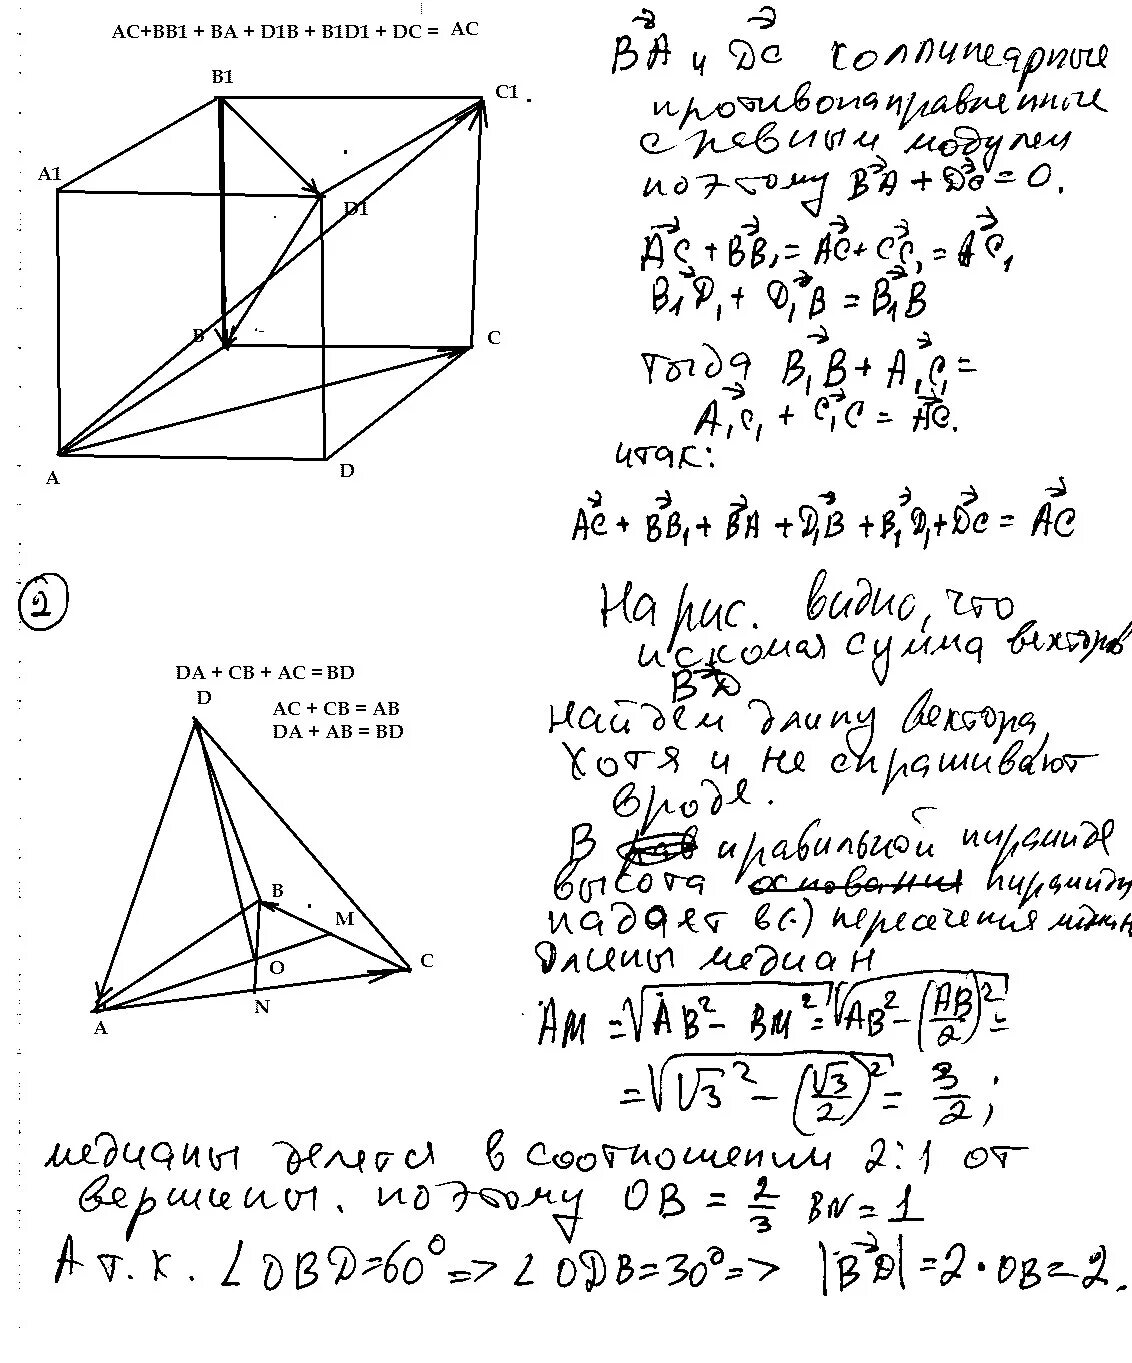 AC+BB1 + BA + D1B + B1D1 + DC = AC
B1
C1
A1
D1
B
C
A
D
BA и DC коллинеарные
противонаправленные
с равным модулем
поэтому BA + DC = 0.
AC + BB₁ = AC + CC₁ = AC₁
B₁D₁ + D₁B = B₁B
тогда B₁B + A₁C₁ =
A₁C₁ + C₁C = AC.
итак:
AC + BB₁ + BA + D₁B + B₁D₁ + DC = AC
2
DA + CB + AC = BD
AC + CB = AB
DA + AB = BD
D
B
M
O
C
N
A
На рис. видно, что
искомая сумма векторов
BD
Найдем длину вектора,
хотя и не спрашивают
вроде.
В правильной пирамиде
высота основания пирамиды
падает в (·) пересечения медиан
Длины медиан
AM = √(AB² − BM²) = √(AB² − (AB/2)²) =
= √(√3² − (√3/2)²) = 3/2;
медианы делятся в соотношении 2:1 от
вершины. поэтому OB = 2/3 BN = 1
А т.к. ∠OBD = 60° => ∠ODB = 30° => |BD| = 2 · OB = 2.